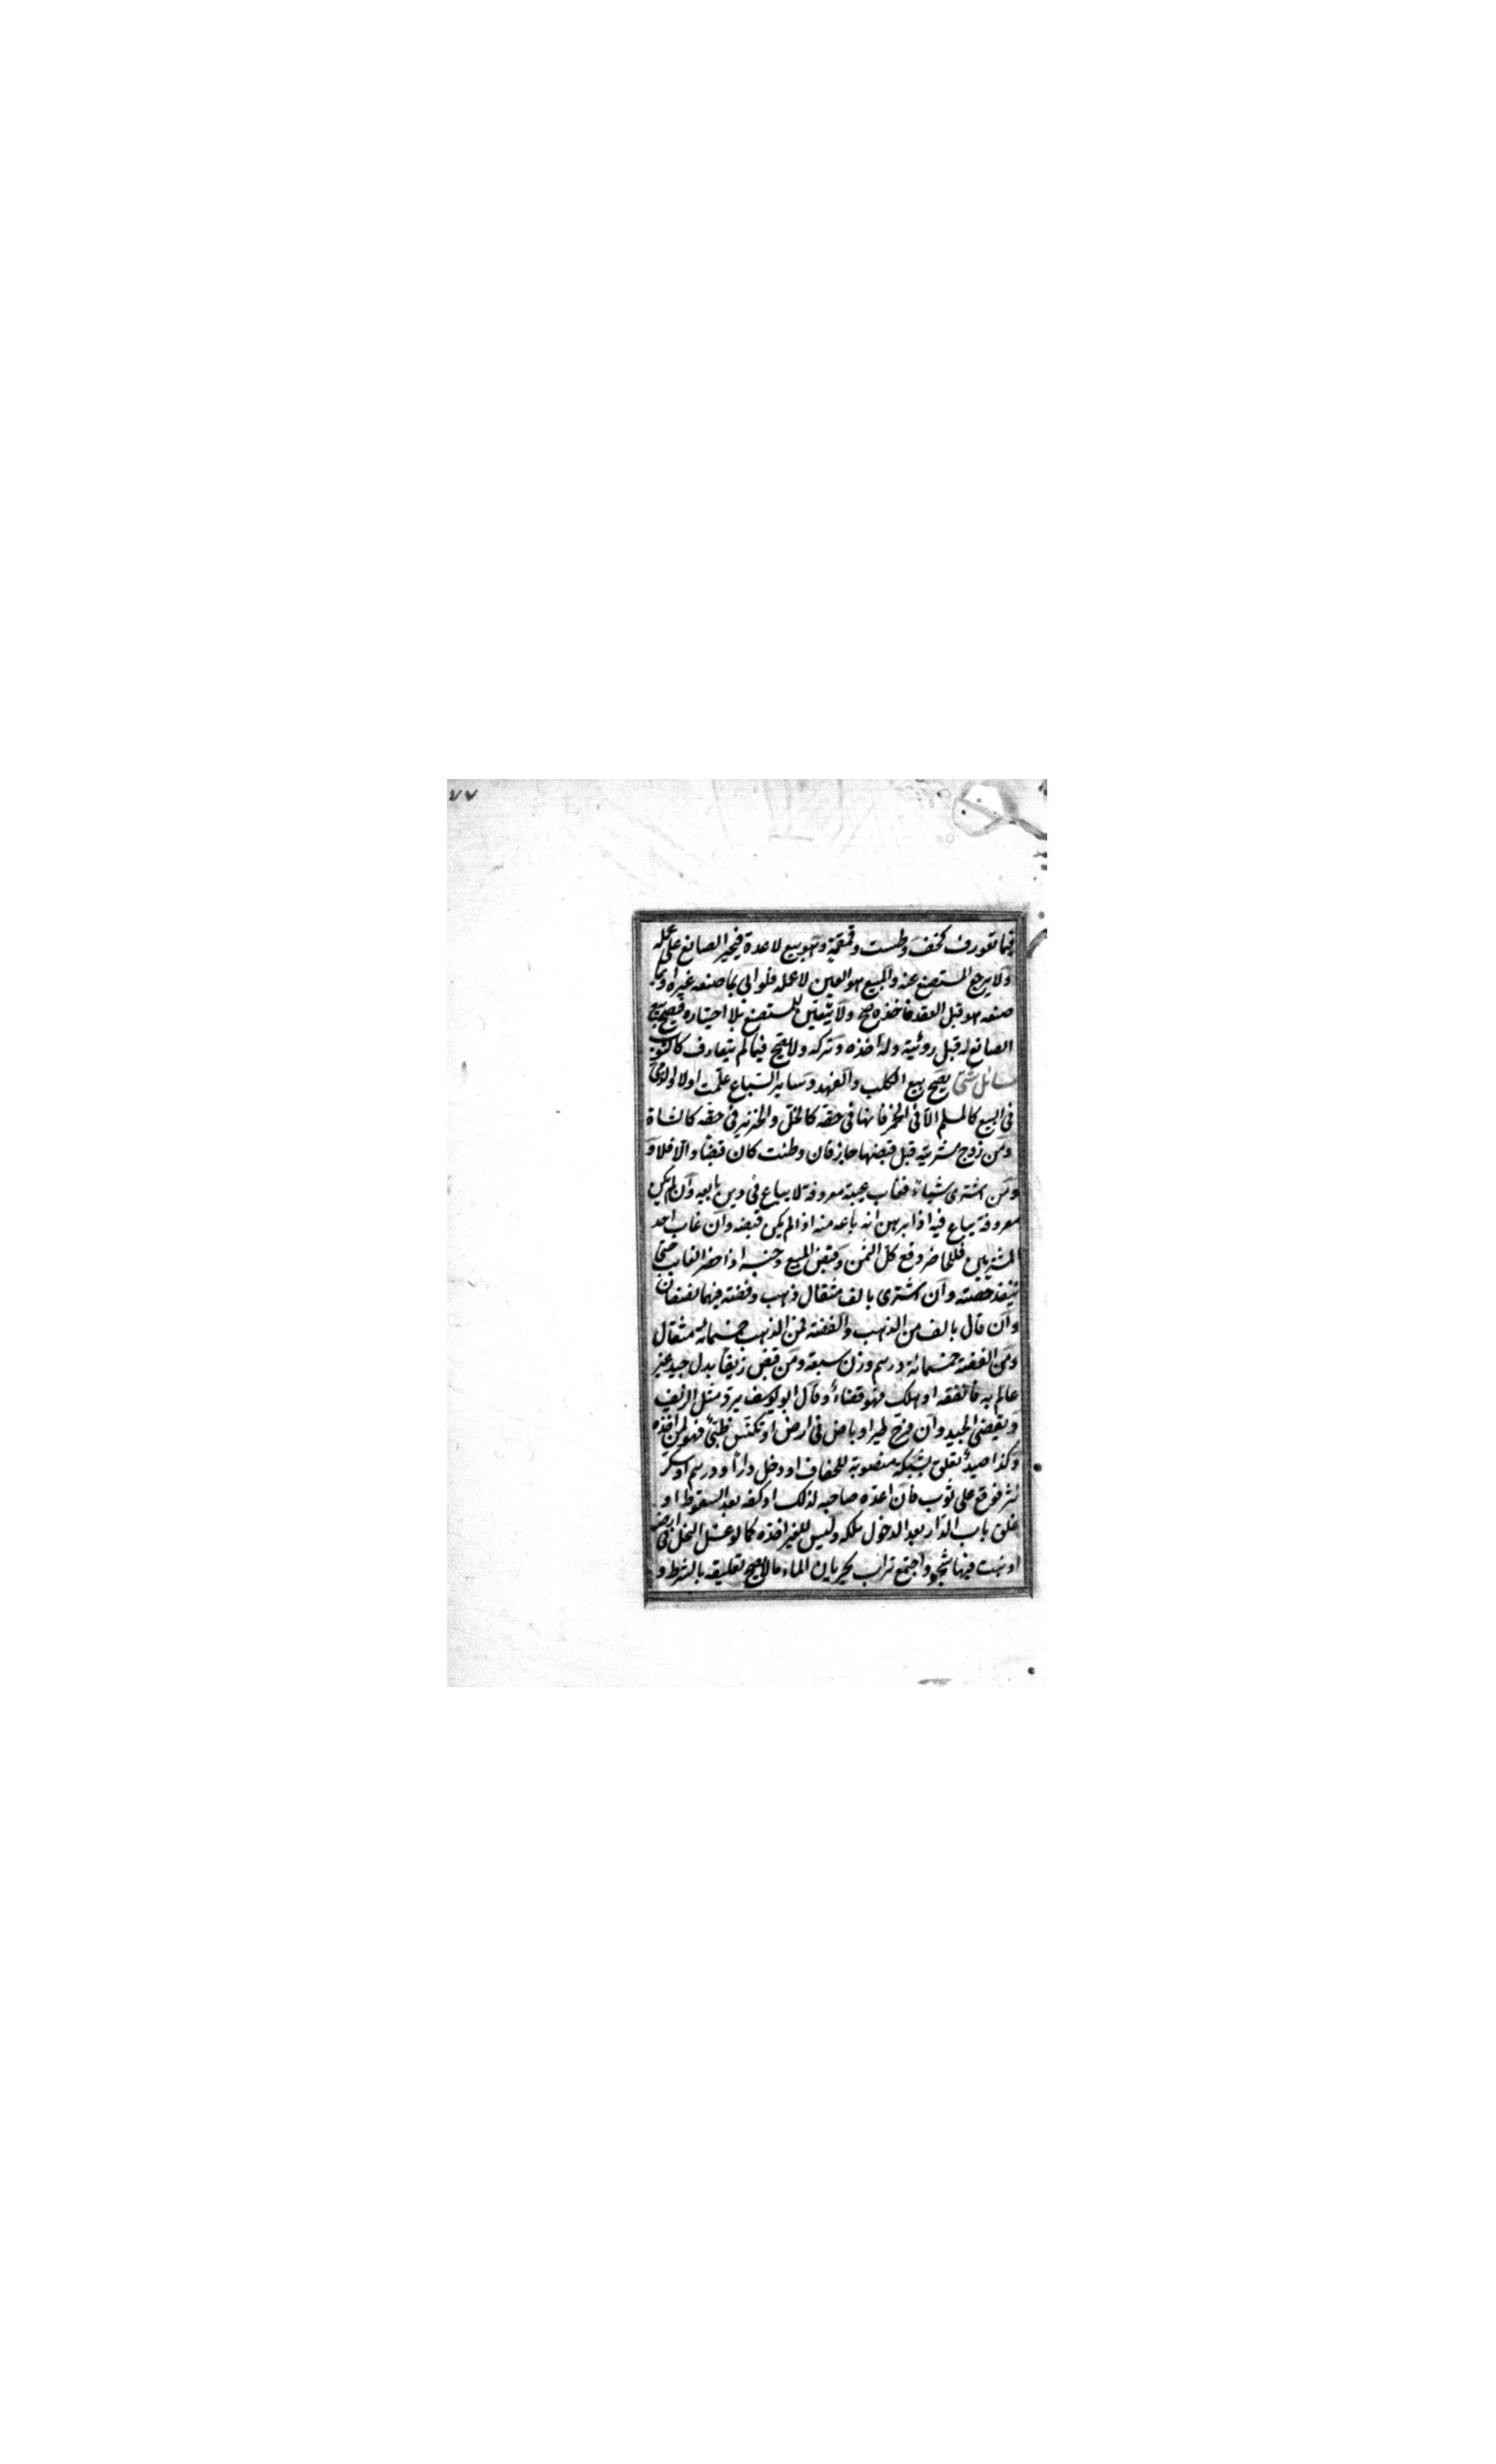 ٧٧
فيما تعورف كخف وطست وقمقمة وهو بيع لا عدة فيجبر الصانع على عمله
ولا يرجع المستصنع عنه والمبيع هو العين لا عمله فلو اتى بما صنعه غيره او بما
صنعه هو قبل العقد فاخذه صح ولا يتعين للمستصنع بلا اختياره فيصح بيع
الصانع له قبل روئية وله اخذه وتركه ولا يصح فيما لم يتعارف كالثوب
مسائل شتى يصح بيع الكلب والفهد وساير السباع علمت او لا والذمى
فى البيع كالمسلم الا فى الخمر فانها فى حقه كالخل والخنزير فى حقه كالشاة
ومن زوج مشريته قبل قبضها جاز فان وطئت كان قبضا والا فلا و
ومن اشترى شيئا فغاب غيبة معروفة لا يباع فى دين بايعه وان لم يكن
معروفة يباع فيه اذا برهن انه باعه منه اذا لم يكن قبضه وان غاب احد
المشتريين فللحاضر دفع كل الثمن وقبض المبيع وحبسه اذا حضر الغائب حتى
ينقد حصته وان اشترى بالف مثقال ذهب وفضة فهما نصفان
وان قال بالف من الذهب والفضة فمن الذهب خمسمائة مثقال
ومن الفضة خمسمائة درهم وزن سبعة ومن قبض زيفا بدل جيد غير
عالم به فانفقه او هلك فهو قضاء وقال ابو يوسف يرد مثل الزيف
ويقتضى الجيد وان فرخ طير او باض فى ارض او تكنس ظبى فهو لمن اخذه
وكذا صيد تعلق بشبكة منصوبة للجفاف او دخل دارا ودرهم او سكر
نثر فوقع على ثوب فان اعده صاحبه لذلك او كفه بعد السقوط او
غلق باب الدار بعد الدخول ملكه وليس للغير اخذه كما لو عسل النحل فى ارضه
او نبت فيها شجر واجتمع تراب بجريان الماء ما لا يصح تعليقه بالشرط و